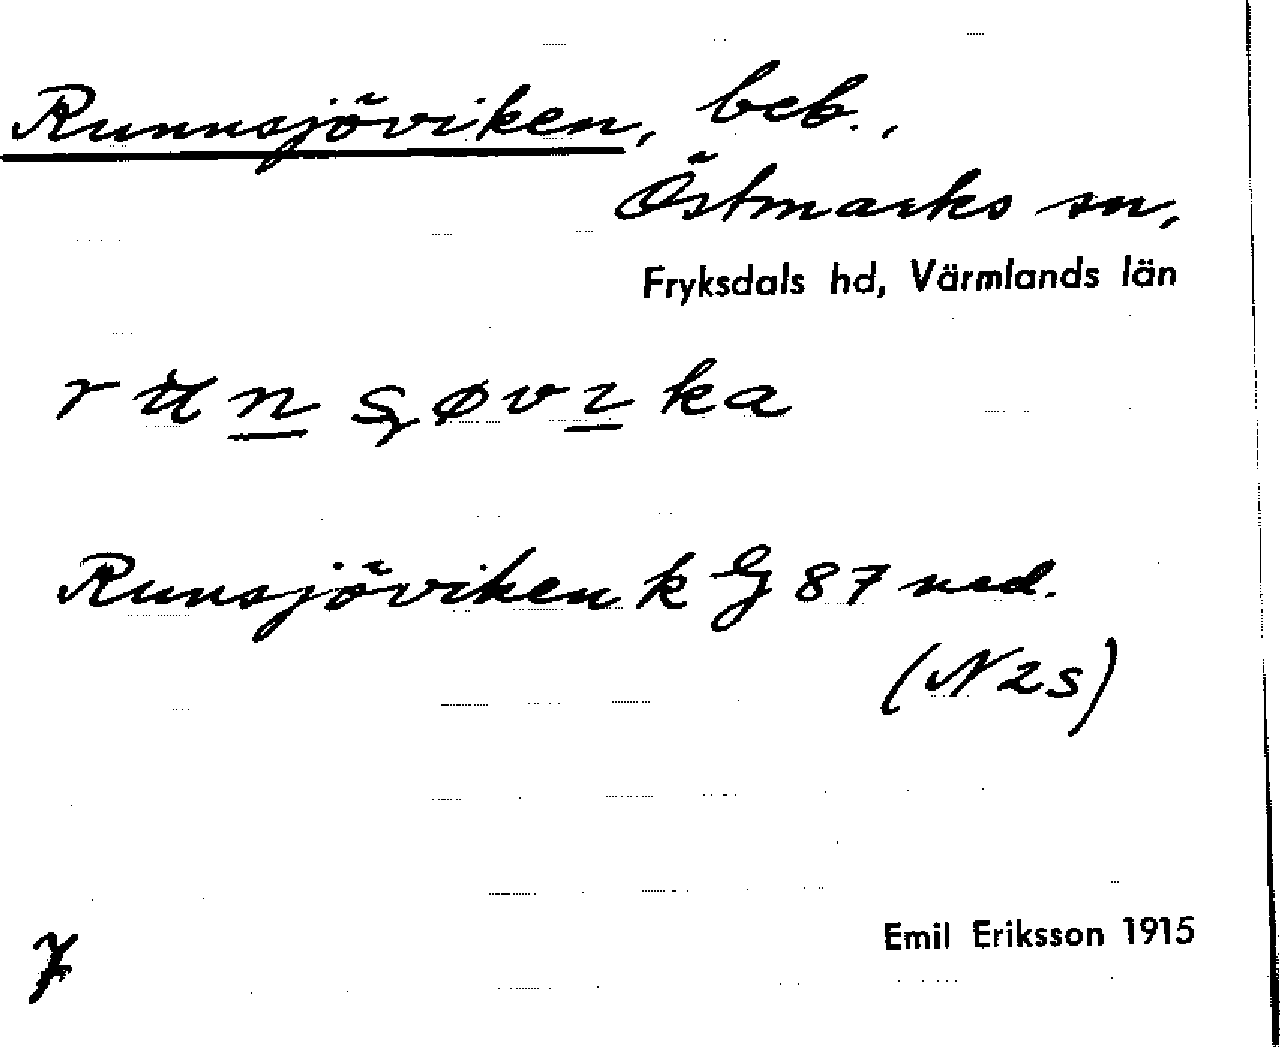 Runnsjöviken, beb.,
Östmarks sn,
Fryksdals hd, Värmlands län
Runsjöviken k G 87 ned.
(N2s)
Emil Eriksson 1915